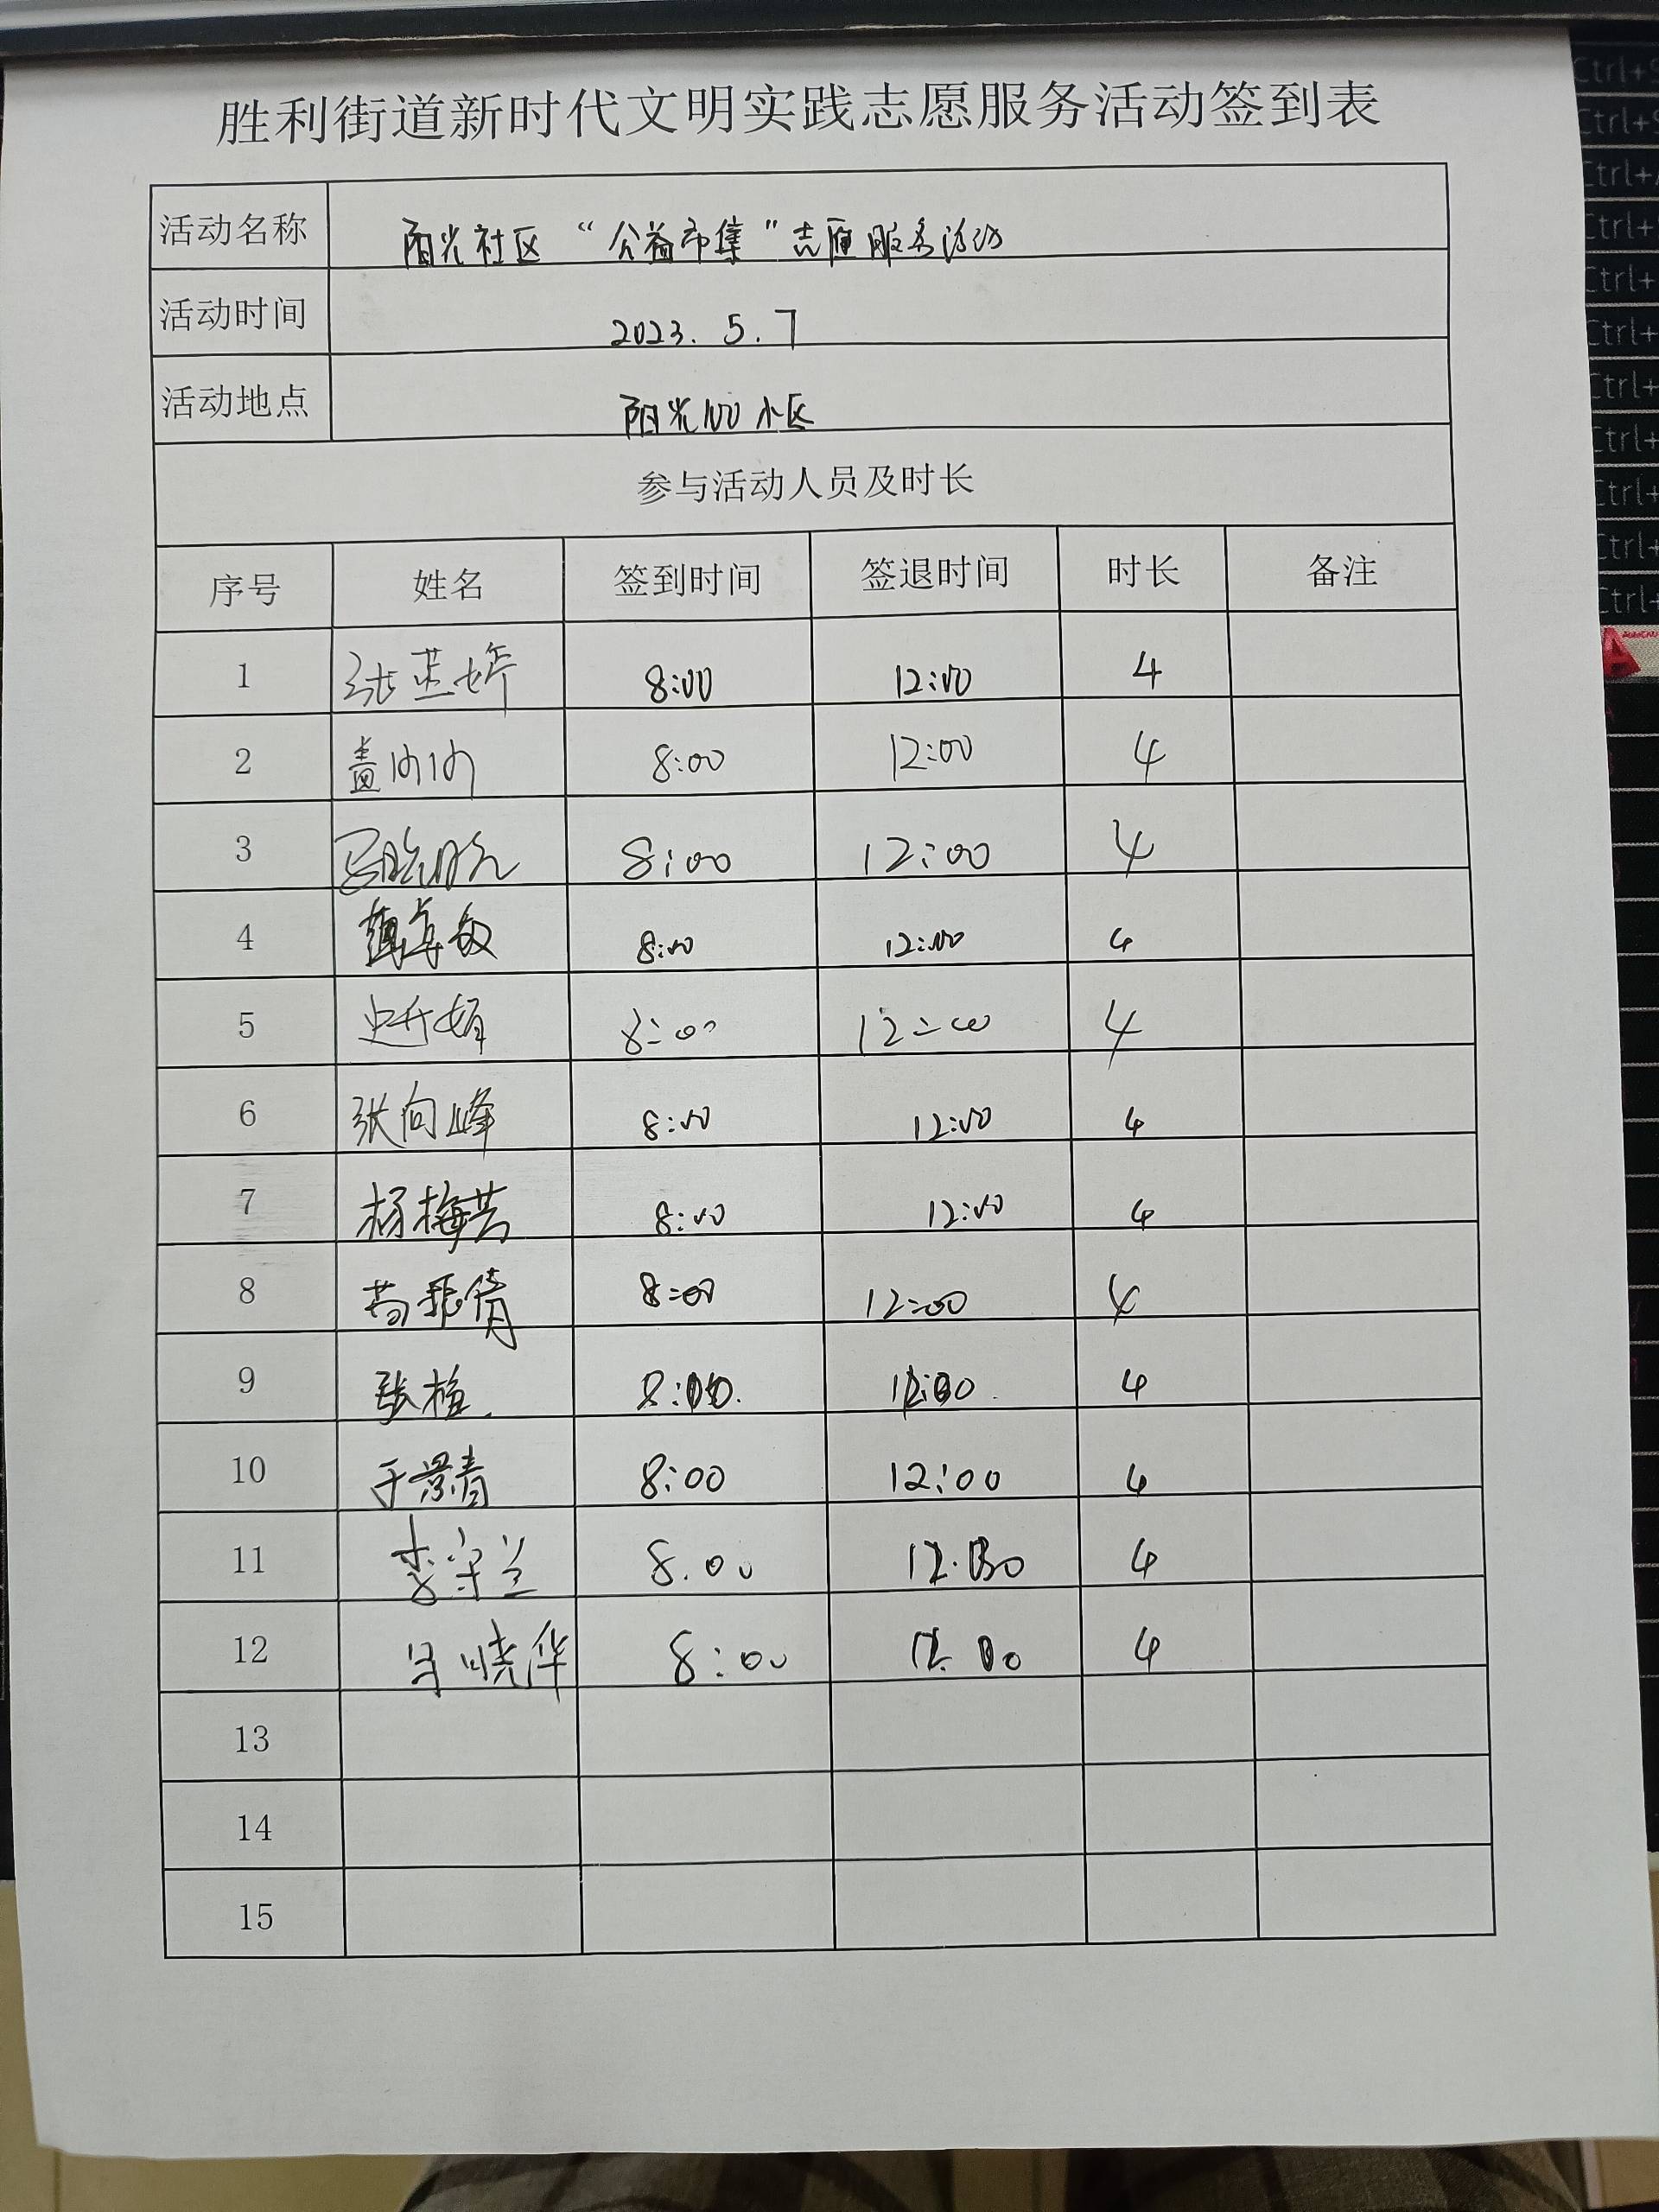 胜利街道新时代文明实践志愿服务活动签到表
活动名称 阳光社区“公益市集”志愿服务活动
活动时间 2023.5.7
活动地点 阳光100小区
参与活动人员及时长
序号 姓名 签到时间 签退时间 时长 备注
1 8:00 12:00 4
2 盖 8:00 12:00 4
3 马晓晓 8:00 12:00 4
4 8:00 12:00 4
5 史 8:00 12:00 4
6 张向峰 8:00 12:00 4
7 杨梅芸 8:00 12:00 4
8 8:00 12:00 4
9 张 8:00. 12:00.
4
10 于景青 8:00 12:00 4
11 李守兰 8.00 12.00 4
12 马晓华 8:00 12.00 4
13
14
15
Ctrl+S
Ctrl+S
Ctrl+
Ctrl+
Ctrl+
Ctrl+
Ctrl+
Ctrl+
Ctrl+
Ctrl+
Ctrl+